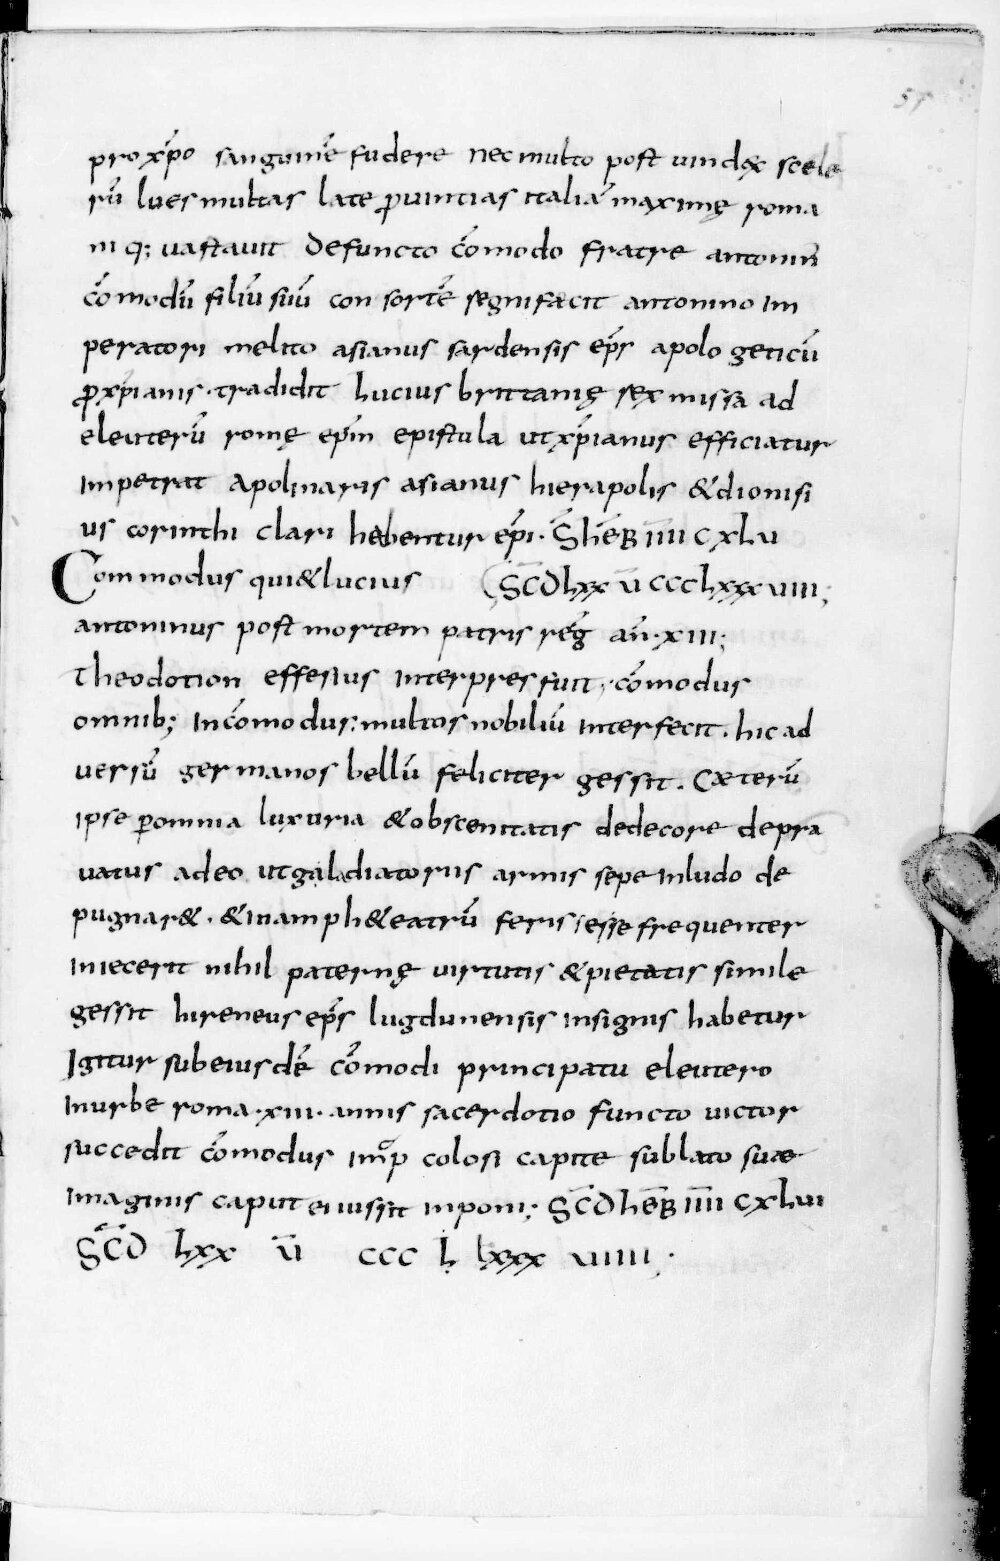 57
pro xp̄o sanguinē fudere nec multo post uindęx scele
rū lues multas late ꝓuintias italiā maximę roma
m q; uastauit defuncto cōmodo fratre antonin̄
cōmodū filiū suū con sortē segni facit antonino im
peratori melito asianus sardensis ep̄s apolo geticū
ꝓ xp̄ianis · tradidit lucius brittanię ręx missa ad
eleuterū romę ep̄m epistula ut xp̄ianus efficiatur
impetrat Apolinaris asianus hierapolis & dionisi
us corinthi clari hebentur ep̄i · S̄ hēB̄ īīīī c xlu
Commodus qui & lucius S̄C̄D lxx ū ccc lxxx uiii;
antoninus post mortem patris rēg an̄ · xiii;
theodotion effesius interpres fuit; cōmodus
omnib; incōmodus; multos nobiliū interfecit · hic ad
uersū germanos bellū feliciter gessit · cęterū
ipse ꝑ omnia luxuria & obscenitatis dedecore depra
uatus adeo ut galadiatoriis armis sepe in ludo de
pugnar& · & in amph&eatrū feris sesse frequenter
iniecerit nihil paternę uirtutis & pietatis simile
gessit hireneus ep̄s lugdunensis insignis habetur
Igitur sub eiusdē cōmodi principatu eleutero
in urbe roma · xiii · annis sacerdotio functo uictor
succedit cōmodus im̄p colosi capite sublato suae
imaginis caput ei iussit inponi; S̄C̄D hēB̄ īīīī c xlui
S̄C̄D lxx ū ccc l lxxx uiiii;